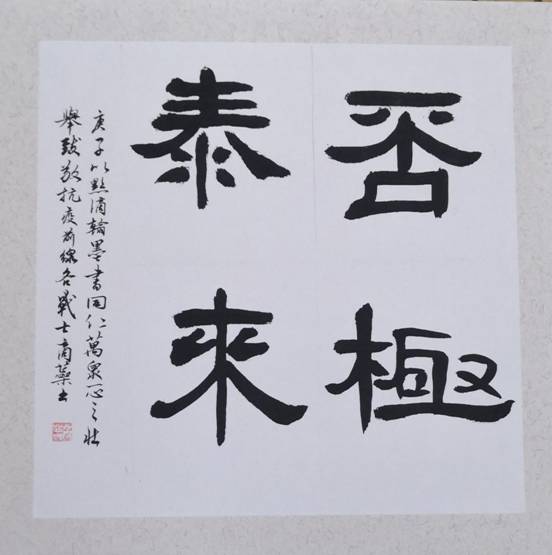 否極
泰來
庚子以點滴翰墨書同仁萬衆一心之壯
舉致敬抗疫前線各戰士